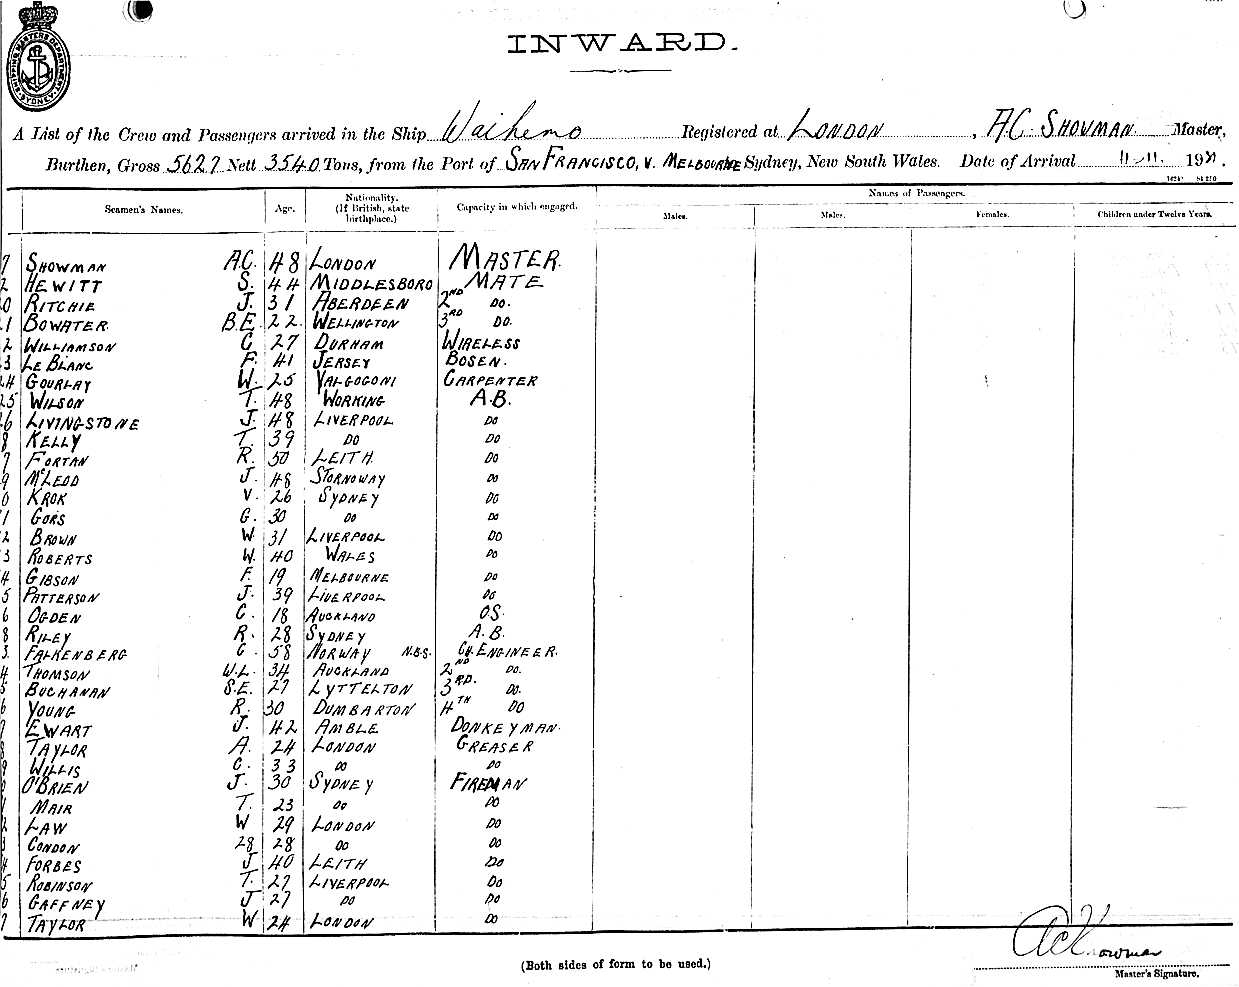 SHIPPING MASTERS DEPARTMENT SYDNEY
INWARD.
A List of the Crew and Passengers arrived in the Ship Waihemo Registered at LONDON, A.C. SHOWMAN Master,
Burthen, Gross 5627 Nett 3540 Tons, from the Port of SAN FRANCISCO, V. MELBOURNE Sydney, New South Wales. Date of Arrival 11-11. 19
Seamen's Names. Age. Nationality. (If British, state birthplace.) Capacity in which engaged. Names of Passengers.
Males. Males. Females. Children under Twelve Years.
7 SHOWMAN A.C. 48 LONDON MASTER.
2 HEWITT S. 44 MIDDLESBORO MATE
0 RITCHIE J. 31 ABERDEEN 2ND DO.
1 BOWATER B.E. 22. WELLINGTON 3RD DO.
2 WILLIAMSON C. 27 DURHAM WIRELESS
3 LE BLANC F. 41 JERSEY BOSEN.
24 GOURLAY W. 25 YALGOGONI CARPENTER
25 WILSON T. 48 WORKING A.B.
26 LIVINGSTONE J. 48 LIVERPOOL DO
8 KELLY T. 39 DO DO
7 FORTAN R. 50 LEITH DO
9 McLEOD J. 48 STORNOWAY DO
0 KROK V. 26 SYDNEY DO
1 GORS G. 30 DO DO
2 BROWN W. 31 LIVERPOOL DO
3 ROBERTS W. 40 WALES DO
4 GIBSON F. 19 MELBOURNE DO
5 PATTERSON J. 39 LIVERPOOL DO
6 OGDEN C. 18 AUCKLAND O.S.
8 RILEY R. 28 SYDNEY A.B.
3. FALKENBERG C. 58 NORWAY N.B.S. CH. ENGINEER.
4 THOMSON W.L. 34 AUCKLAND 2ND DO.
5 BUCHANAN S.E. 27 LYTTELTON 3RD. DO.
6 YOUNG R. 30 DUMBARTON 4TH DO
7 EWART J. 42 AMBLE DONKEYMAN.
8 TAYLOR A. 24 LONDON GREASER
9 WILLIS C. 33 DO DO
O'BRIEN J. 30 SYDNEY FIREMAN
1 MAIR T. 23 DO DO
2 LAW W 29 LONDON DO
3 CONDON 28 28 DO DO
4 FORBES J 40 LEITH DO
5 ROBINSON T. 27 LIVERPOOL DO
6 GAFFNEY J 27 DO DO
7 TAYLOR W 24 LONDON DO
AC Showman
(Both sides of form to be used.)
Master's Signature.